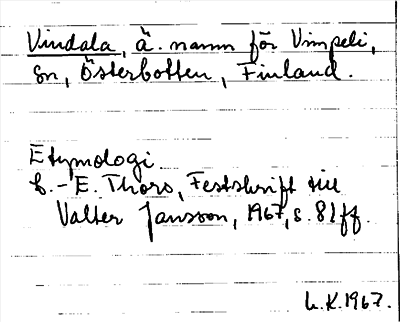 Vindala, ä. namn för Vimpeli,
sn, Österbotten, Finland.
Etymologi
C.-E. Thors, Festskrift till
Valter Jansson, 1967, s. 81ff.
L.K. 1967.